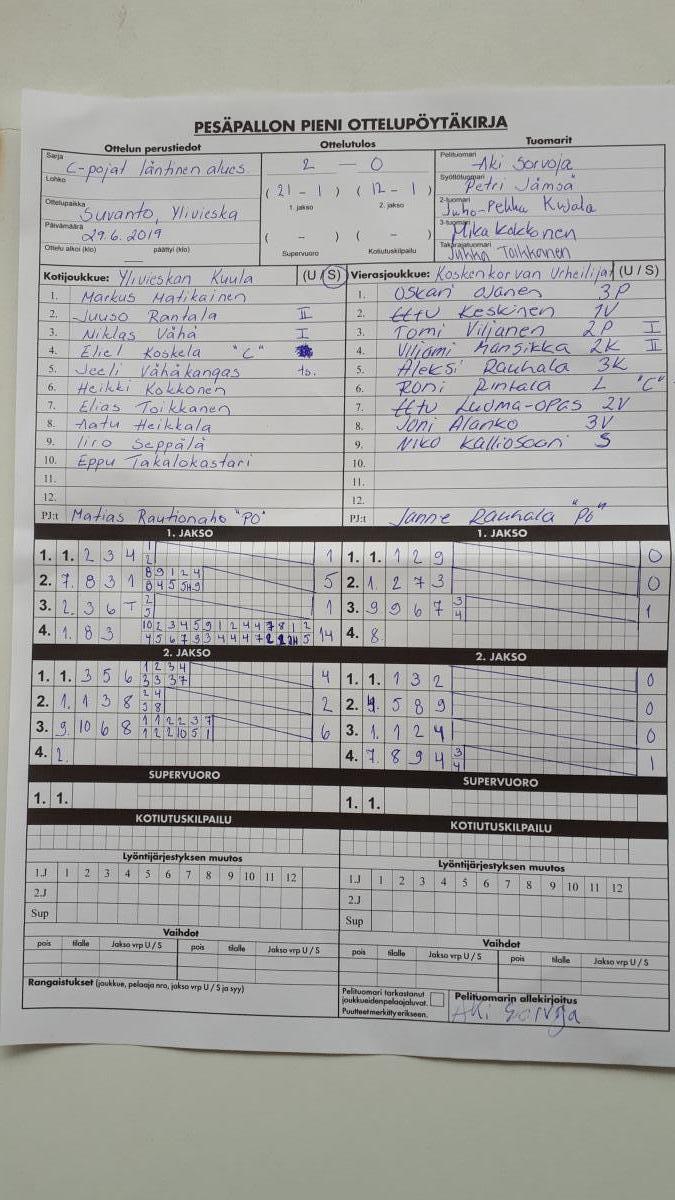 PESÄPALLON PIENI OTTELUPÖYTÄKIRJA
Ottelun perustiedot
Ottelutulos
Tuomarit
Sarja C-pojat läntinen alues.
Lohko
Ottelupaikka Suvanto, Ylivieska
Päivämäärä 29.6.2019
Ottelu alkoi (klo) päättyi (klo)
2 — 0
( 21 - 1 ) ( 12 - 1 )
1. jakso 2. jakso
( - ) ( - )
Supervuoro Kotiutuskilpailu
Pelituomari Aki Sorvoja
Syöttötuomari Petri Jämsä
2-tuomari Juho-Pekka Kujala
3-tuomari Mika Kokkonen
Takarajatuomari Jukka Toikkanen
Kotijoukkue: Ylivieskan Kuula (U / S)
1. Markus Matikainen
2. Juuso Rantala II
3. Niklas Vähä I
4. Eliel Koskela "C"
5. Jeeli Vähäkangas
6. Heikki Kokkonen
7. Elias Toikkanen
8. Aatu Heikkala
9. Iiro Seppälä
10. Eppu Takalokastari
11.
12.
PJ:t Matias Rautionaho "PO"
Vierasjoukkue: Koskenkorvan Urheilijat (U / S)
1. Oskari Ojanen 3P
2. Eetu Keskinen 1V
3. Tomi Viljanen 2P I
4. Viljami Mansikka 2K II
5. Aleksi Rauhala 3K
6. Roni Rintala L "C"
7. Eetu Luoma-opas 2V
8. Joni Alanko 3V
9. Niko Kalliosaari S
10.
11.
12.
PJ:t Janne Rauhala "PO"
1. JAKSO
1. 1. 2 3 4 1
2. 7. 8 3 1 8 9 1 2 4 5
3. 2. 3 6 T 2 1
4. 1. 8 3 10 2 3 4 5 9 1 2 4 4 7 8 1 2 14
1. JAKSO
1. 1. 1 2 9 0
2. 1. 2 7 3 0
3. 9 9 6 7 3 1
4
4. 8.
2. JAKSO
1. 1. 3 5 6 1 2 3 4 4
3 3 3 7
2. 1. 1 3 8 2 4 2
3 8
3. 9. 10 6 8 1 1 2 2 3 7 6
1 2 2 10 5 1
4. 2.
2. JAKSO
1. 1. 1 3 2 0
2. 4. 5 8 9 0
3. 1. 1 2 4 0
4. 7. 8 9 4 3 1
4
SUPERVUORO
1. 1.
SUPERVUORO
1. 1.
KOTIUTUSKILPAILU
KOTIUTUSKILPAILU
Lyöntijärjestyksen muutos
1.J 1 2 3 4 5 6 7 8 9 10 11 12
2.J
Sup
Lyöntijärjestyksen muutos
1.J 1 2 3 4 5 6 7 8 9 10 11 12
2.J
Sup
Vaihdot
pois tilalle Jakso vrp U / S pois tilalle Jakso vrp U / S
Vaihdot
pois tilalle Jakso vrp U / S pois tilalle Jakso vrp U / S
Rangaistukset (joukkue, pelaaja nro, jakso vrp U / S ja syy)
Pelituomari tarkastanut
joukkueidenpelaajaluvat.
Puutteet merkitty erikseen.
Pelituomarin allekirjoitus
Aki Sorvoja